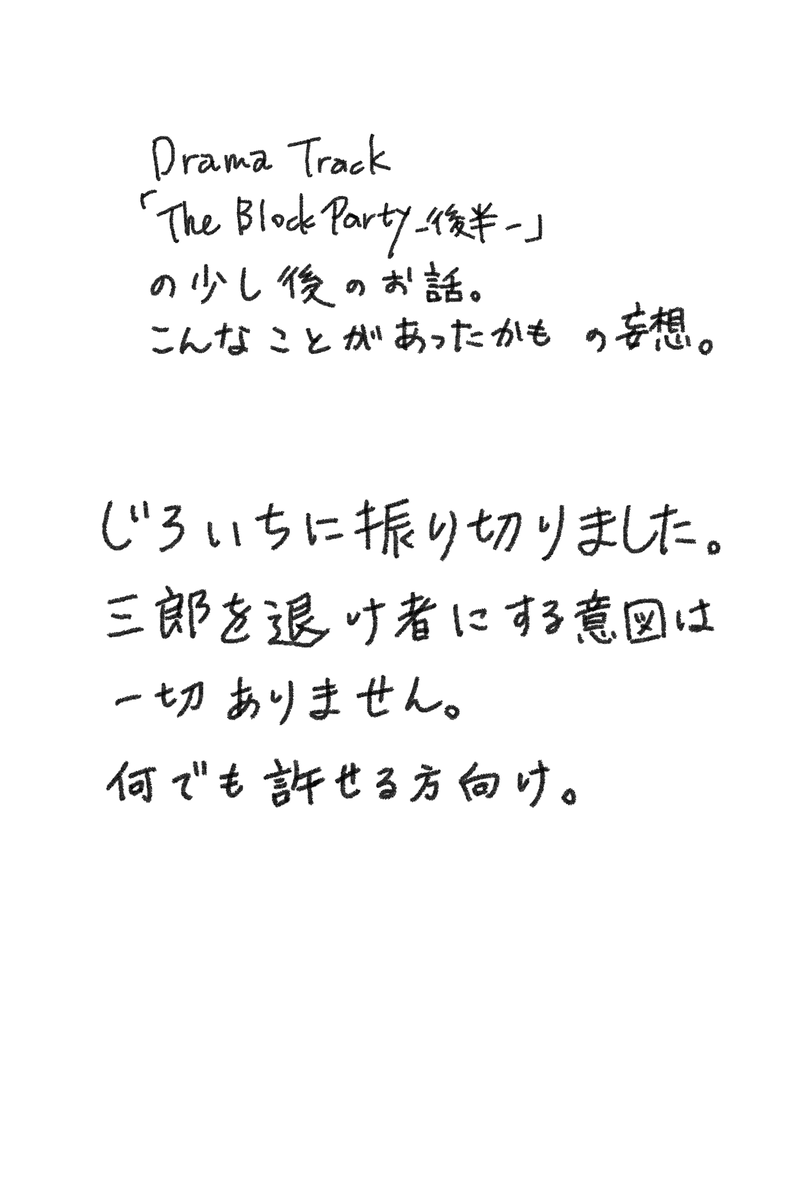 Drama Track
「The Block Party -後半-」
の少し後のお話。
こんなことがあったかも の妄想。
じろいちに振り切りました。
三郎を退け者にする意図は
一切ありません。
何でも許せる方向け。